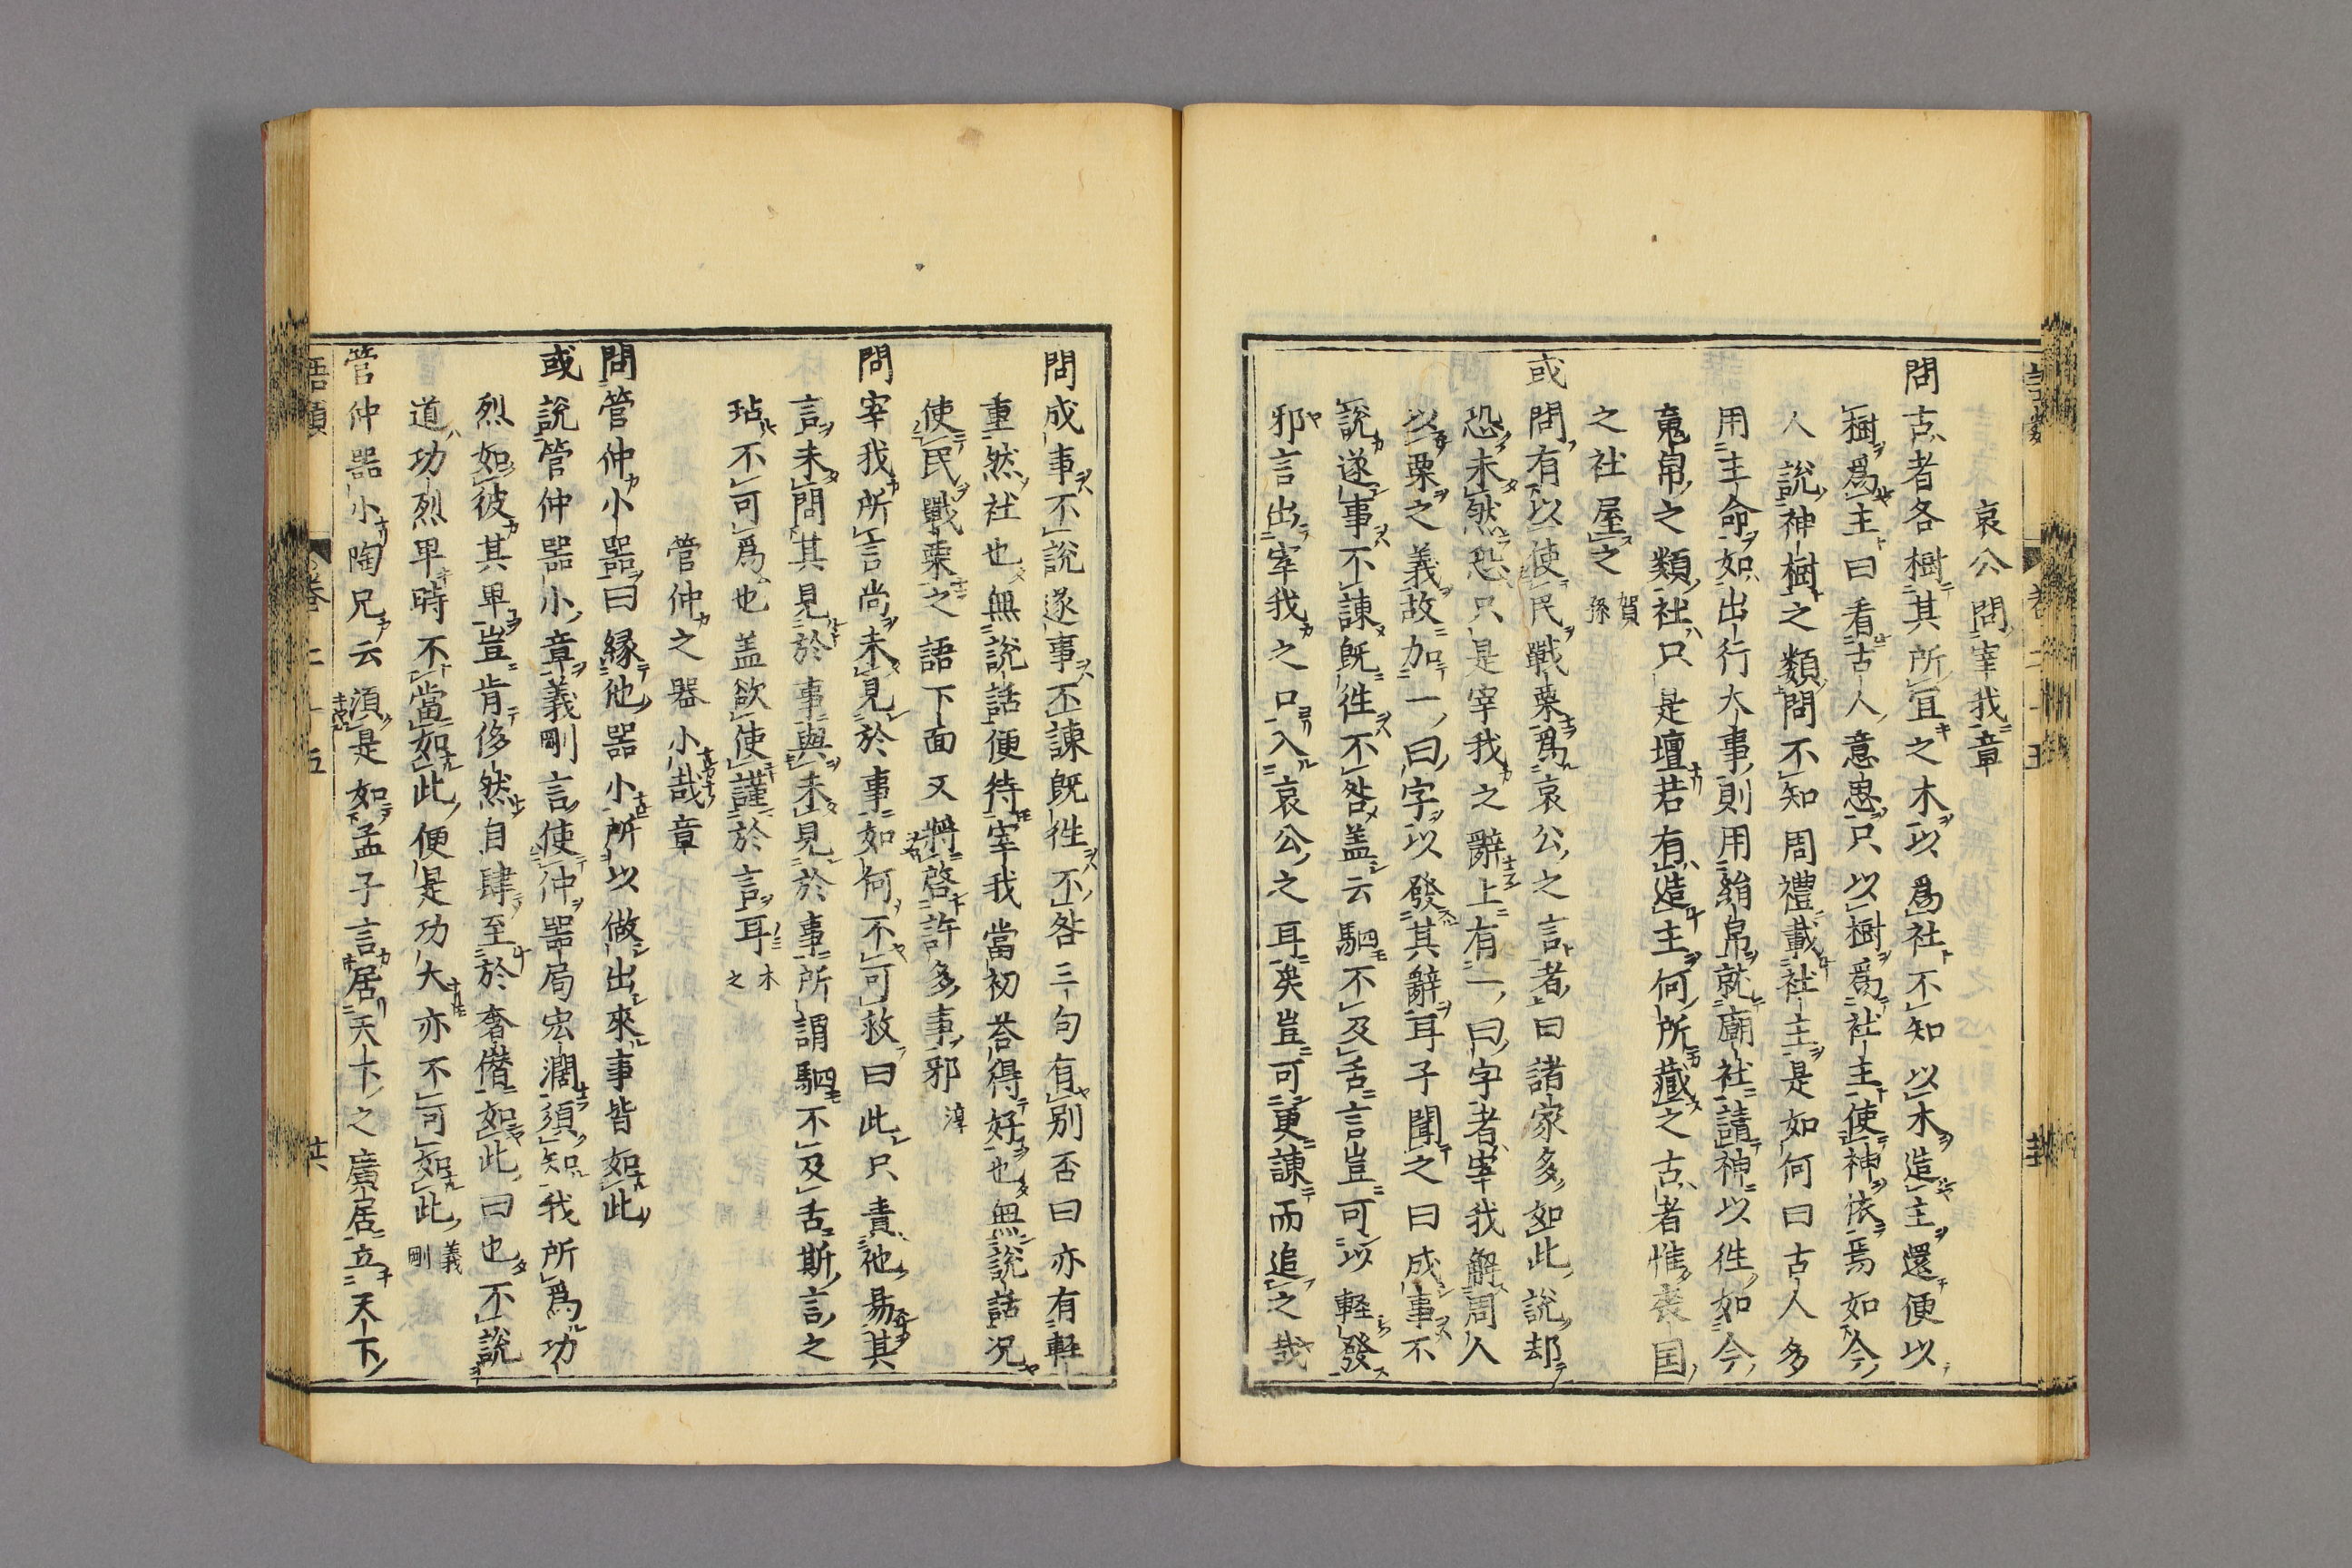 哀公問宰我章
問古者各樹其所宜之木以為社不知以木造主還便以
樹為主曰看古人意思只以樹為社主使神依焉如今
人說神樹之類問不知周禮載社主是如何曰古人多
用主命如出行大事則用絹帛就廟社請神以往如今
䰟帛之類社只是壇若有造主何所藏之古者惟喪国
之社屋之 賀孫
或問有以使民戰栗為哀公之言者曰諸家多如此說却
恐未然恐只是宰我之辭上有一曰字者宰我解周人
以栗之義故加一曰字以發其辭耳子聞之曰成事不
說遂事不諫既徃不咎盖云駟不及舌言豈可以輕發
邪言出宰我之口入哀公之耳矣豈可更諫而追之哉
問成事不說遂事不諫既徃不咎三句有别否曰亦有輕
重然社也無說話便待宰我當初荅得好也無說話况
使民戰栗之語下面又將啓許多事邪 淳
問宰我所言尚未見於事如何不可救曰此只責他易其
言未問其見於事與未見於事所謂駟不及舌斯言之
玷不可為也盖欲使謹於言耳 木之
管仲之器小哉章
問管仲小器曰縁他器小所以做出來事皆如此
或說管仲器小章義剛言使仲器局宏濶須知我所為功
烈如彼其卑豈肯侈然自肆至於奢僣如此曰也不說
道功烈卑時不當如此便是功大亦不可如此 義剛
管仲器小陶兄云須是如孟子言居天下之廣居立天下
語類 卷二十五 十六